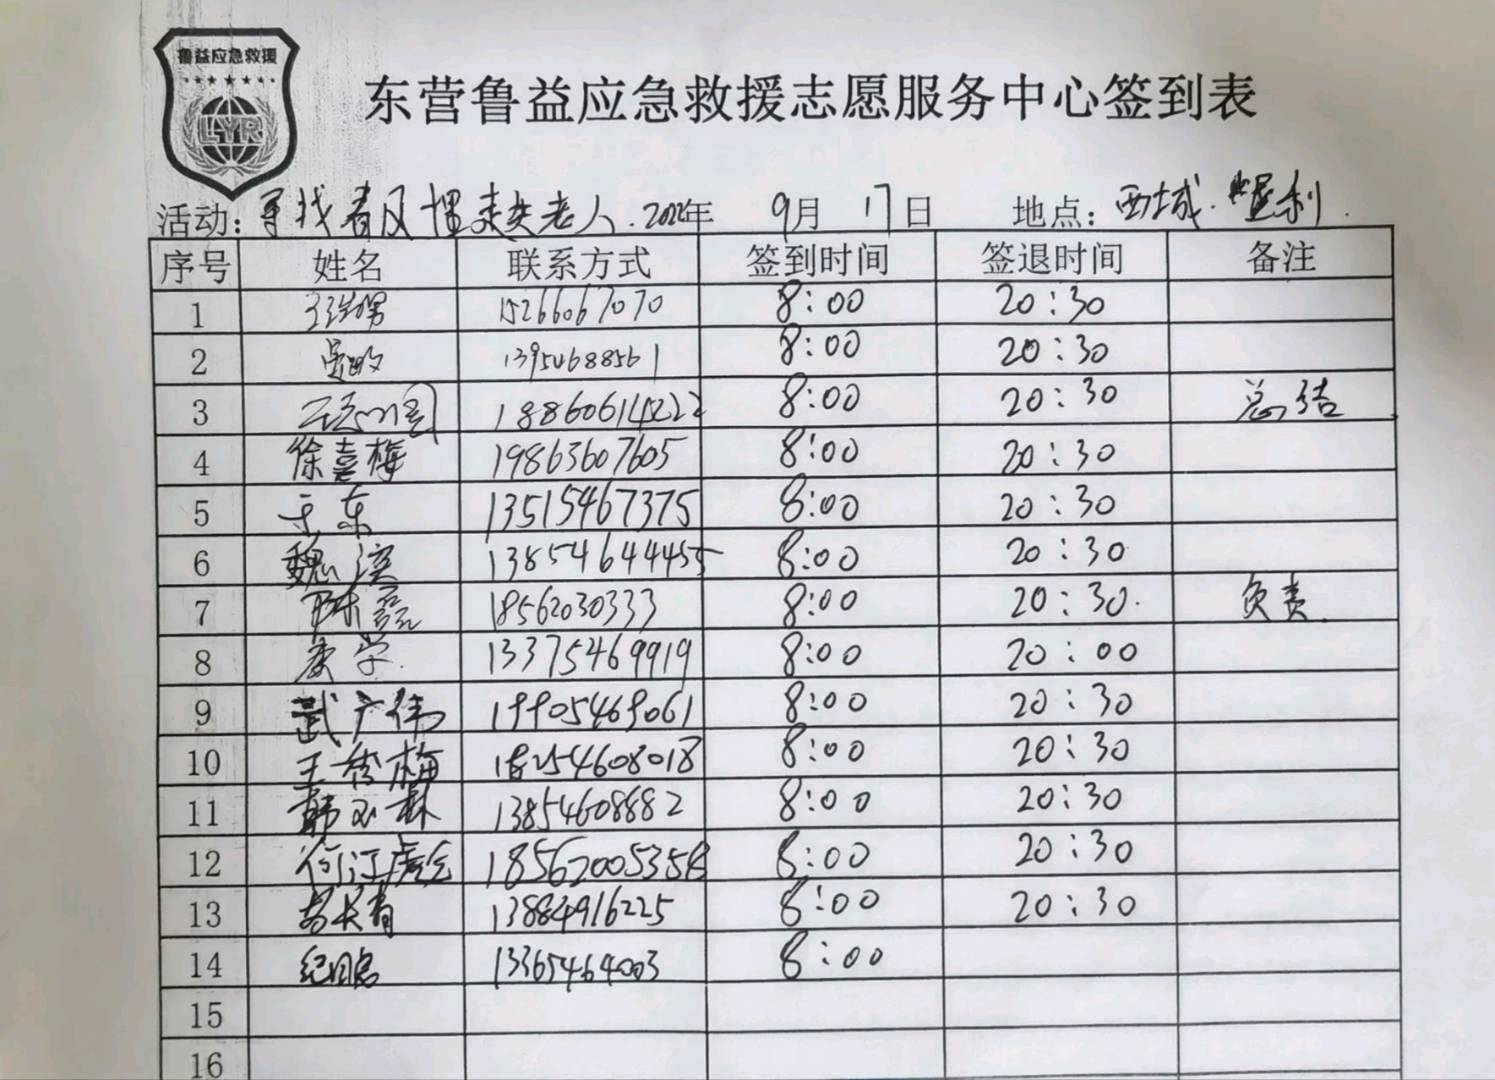 鲁益应急救援
LYR
东营鲁益应急救援志愿服务中心签到表
活动: 寻找 走失老人. 2022年 9月 17日 地点: 西城. 垦利.
序号 姓名 联系方式 签到时间 签退时间 备注
1 15266067070 8:00 20:30
2 13954688561 8:00 20:30
3 18860614222 8:00 20:30 总结
4 徐喜梅 19863607605 8:00 20:30
5 于东 13515467375 8:00 20:30
6 魏滨 13854644455 8:00 20:30
7 陈磊 18562030333 8:00 20:30. 负责.
8 13375469919 8:00 20:00
9 武广伟 19905469061 8:00 20:30
10 王秀梅 18254608018 8:00 20:30
11 韩玉林 13854608882 8:00 20:30
12 18562005358 8:00 20:30
13 苏长青 13884916225 8:00 20:30
14 13365464003 8:00
15
16